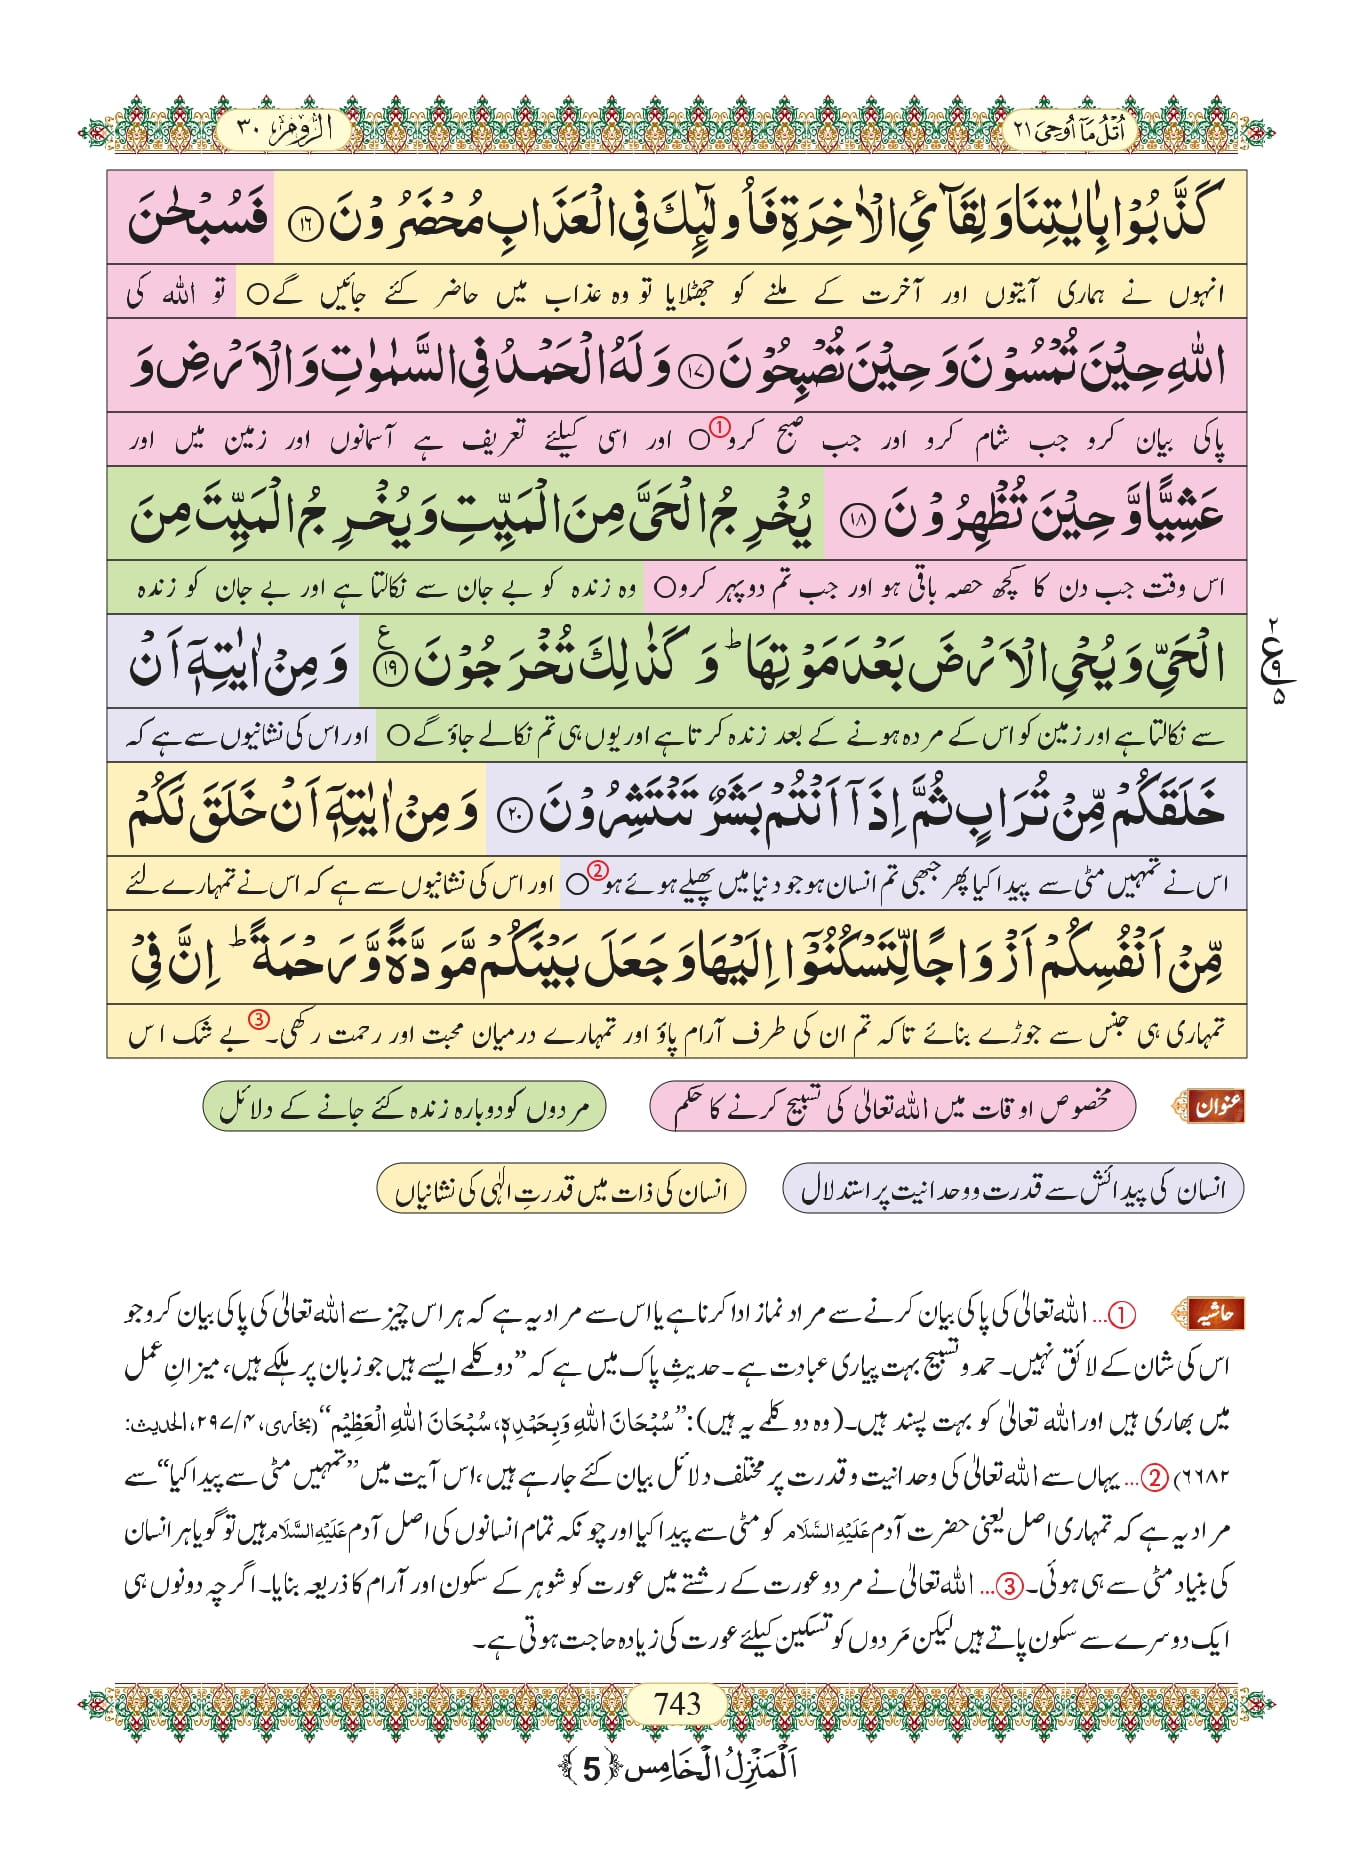 اُتْلُ مَاۤ اُوْحِیَ ۲۱
الرُّوْم ۳۰
كَذَّبُوْا بِاٰیٰتِنَا وَ لِقَآئِ الْاٰخِرَةِ فَاُولٰٓىٕكَ فِی الْعَذَابِ مُحْضَرُوْنَ ۝۱۶ فَسُبْحٰنَ
انہوں نے ہماری آیتوں اور آخرت کے ملنے کو جھٹلایا تو وہ عذاب میں حاضر کئے جائیں گے ○ تو اللہ کی
اللّٰهِ حِیْنَ تُمْسُوْنَ وَ حِیْنَ تُصْبِحُوْنَ ۝۱۷ وَ لَهُ الْحَمْدُ فِی السَّمٰوٰتِ وَ الْاَرْضِ وَ
پاکی بیان کرو جب شام کرو اور جب صبح کرو ① ○ اور اسی کیلئے تعریف ہے آسمانوں اور زمین میں اور
عَشِیًّا وَّ حِیْنَ تُظْهِرُوْنَ ۝۱۸ یُخْرِ جُ الْحَیَّ مِنَ الْمَیِّتِ وَ یُخْرِ جُ الْمَیِّتَ مِنَ
اس وقت جب دن کا کچھ حصہ باقی ہو اور جب تم دوپہر کرو ○ وہ زندہ کو بے جان سے نکالتا ہے اور بے جان کو زندہ
الْحَیِّ وَ یُحْیِ الْاَرْضَ بَعْدَ مَوْتِهَاؕ وَ كَذٰلِكَ تُخْرَجُوْنَ ۝۱۹ ع وَ مِنْ اٰیٰتِهٖۤ اَنْ
۲ ع ۹ ۵
سے نکالتا ہے اور زمین کو اس کے مردہ ہونے کے بعد زندہ کرتا ہے اور یوں ہی تم نکالے جاؤ گے ○ اور اس کی نشانیوں سے ہے کہ
خَلَقَكُمْ مِّنْ تُرَابٍ ثُمَّ اِذَاۤ اَنْتُمْ بَشَرٌ تَنْتَشِرُوْنَ ۝۲۰ وَ مِنْ اٰیٰتِهٖۤ اَنْ خَلَقَ لَكُمْ
اس نے تمہیں مٹی سے پیدا کیا پھر جبھی تم انسان ہو جو دنیا میں پھیلے ہوئے ہو ② ○ اور اس کی نشانیوں سے ہے کہ اس نے تمہارے لئے
مِّنْ اَنْفُسِكُمْ اَزْوَاجًا لِّتَسْكُنُوْۤا اِلَیْهَا وَ جَعَلَ بَیْنَكُمْ مَّوَدَّةً وَّ رَحْمَةًؕ اِنَّ فِیْ
تمہاری ہی جنس سے جوڑے بنائے تاکہ تم ان کی طرف آرام پاؤ اور تمہارے درمیان محبت اور رحمت رکھی۔ ③ بے شک اس
عنوان مخصوص اوقات میں اللہ تعالیٰ کی تسبیح کرنے کا حکم مردوں کو دوبارہ زندہ کئے جانے کے دلائل
انسان کی پیدائش سے قدرت و وحدانیت پر استدلال انسان کی ذات میں قدرتِ الٰہی کی نشانیاں
حاشیہ ①... اللہ تعالیٰ کی پاکی بیان کرنے سے مراد نماز ادا کرنا ہے یا اس سے مراد یہ ہے کہ ہر اس چیز سے اللہ تعالیٰ کی پاکی بیان کرو جو
اس کی شان کے لائق نہیں۔ حمد و تسبیح بہت پیاری عبادت ہے۔ حدیثِ پاک میں ہے کہ ”دو کلمے ایسے ہیں جو زبان پر ہلکے ہیں، میزانِ عمل
میں بھاری ہیں اور اللہ تعالیٰ کو بہت پسند ہیں۔ (وہ دو کلمے یہ ہیں): ”سُبْحَانَ اللهِ وَبِحَمْدِهٖ، سُبْحَانَ اللهِ الْعَظِيْم“ (بخاری، ۴/۲۹۷، الحدیث:
۶۶۸۲) ②... یہاں سے اللہ تعالیٰ کی وحدانیت و قدرت پر مختلف دلائل بیان کئے جا رہے ہیں، اس آیت میں ”تمہیں مٹی سے پیدا کیا“ سے
مراد یہ ہے کہ تمہاری اصل یعنی حضرت آدم عَلَيْهِ السَّلَام کو مٹی سے پیدا کیا اور چونکہ تمام انسانوں کی اصل آدم عَلَيْهِ السَّلَام ہیں تو گویا ہر انسان
کی بنیاد مٹی سے ہی ہوئی۔ ③... اللہ تعالیٰ نے مرد و عورت کے رشتے میں عورت کو شوہر کے سکون اور آرام کا ذریعہ بنایا۔ اگرچہ دونوں ہی
ایک دوسرے سے سکون پاتے ہیں لیکن مَردوں کو تسکین کیلئے عورت کی زیادہ حاجت ہوتی ہے۔
743
اَلْمَنْزِلُ الْخَامِس ﴿5﴾